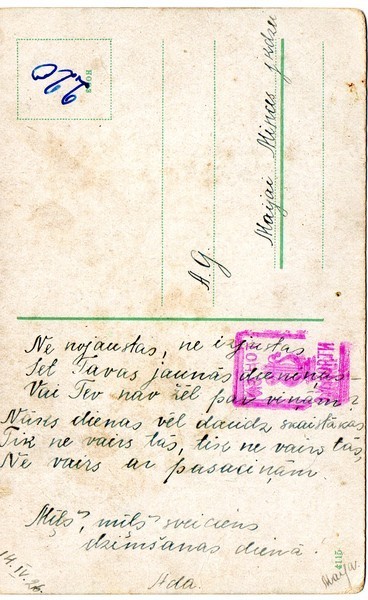 220
A. G.
Maijai Mincei
Ne nojaustas, ne izjustas
Iet Tavas jaunās dieniņas –
Vai Tev nav žēl par viņām?
Nāks dienas vēl daudz skaistākas
Tik ne vairs tās, tik ne vairs tās,
Ne vairs ar pasaciņām.
Mīļš, mīļš sveiciens
dzimšanas dienā!
Ada.
14. IV. 26.
4115